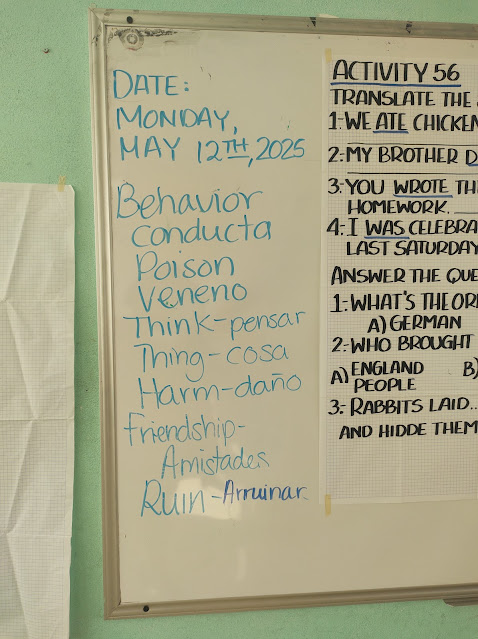 DATE:
MONDAY,
MAY 12TH, 2025
Behavior
conducta
Poison
Veneno
Think-pensar
Thing-cosa
Harm-daño
Friendship-
Amistades
Ruin-Arruinar
ACTIVITY 56
TRANSLATE THE
1:-WE ATE CHICKEN
2:-MY BROTHER
3:-YOU WROTE
HOMEWORK.
4:-I WAS
LAST SATURDAY
ANSWER THE
1:-WHAT'S THE
A) GERMAN
2:-WHO BROUGHT
A) ENGLAND B)
PEOPLE
3:- RABBITS LAID...
AND HIDDE THEM